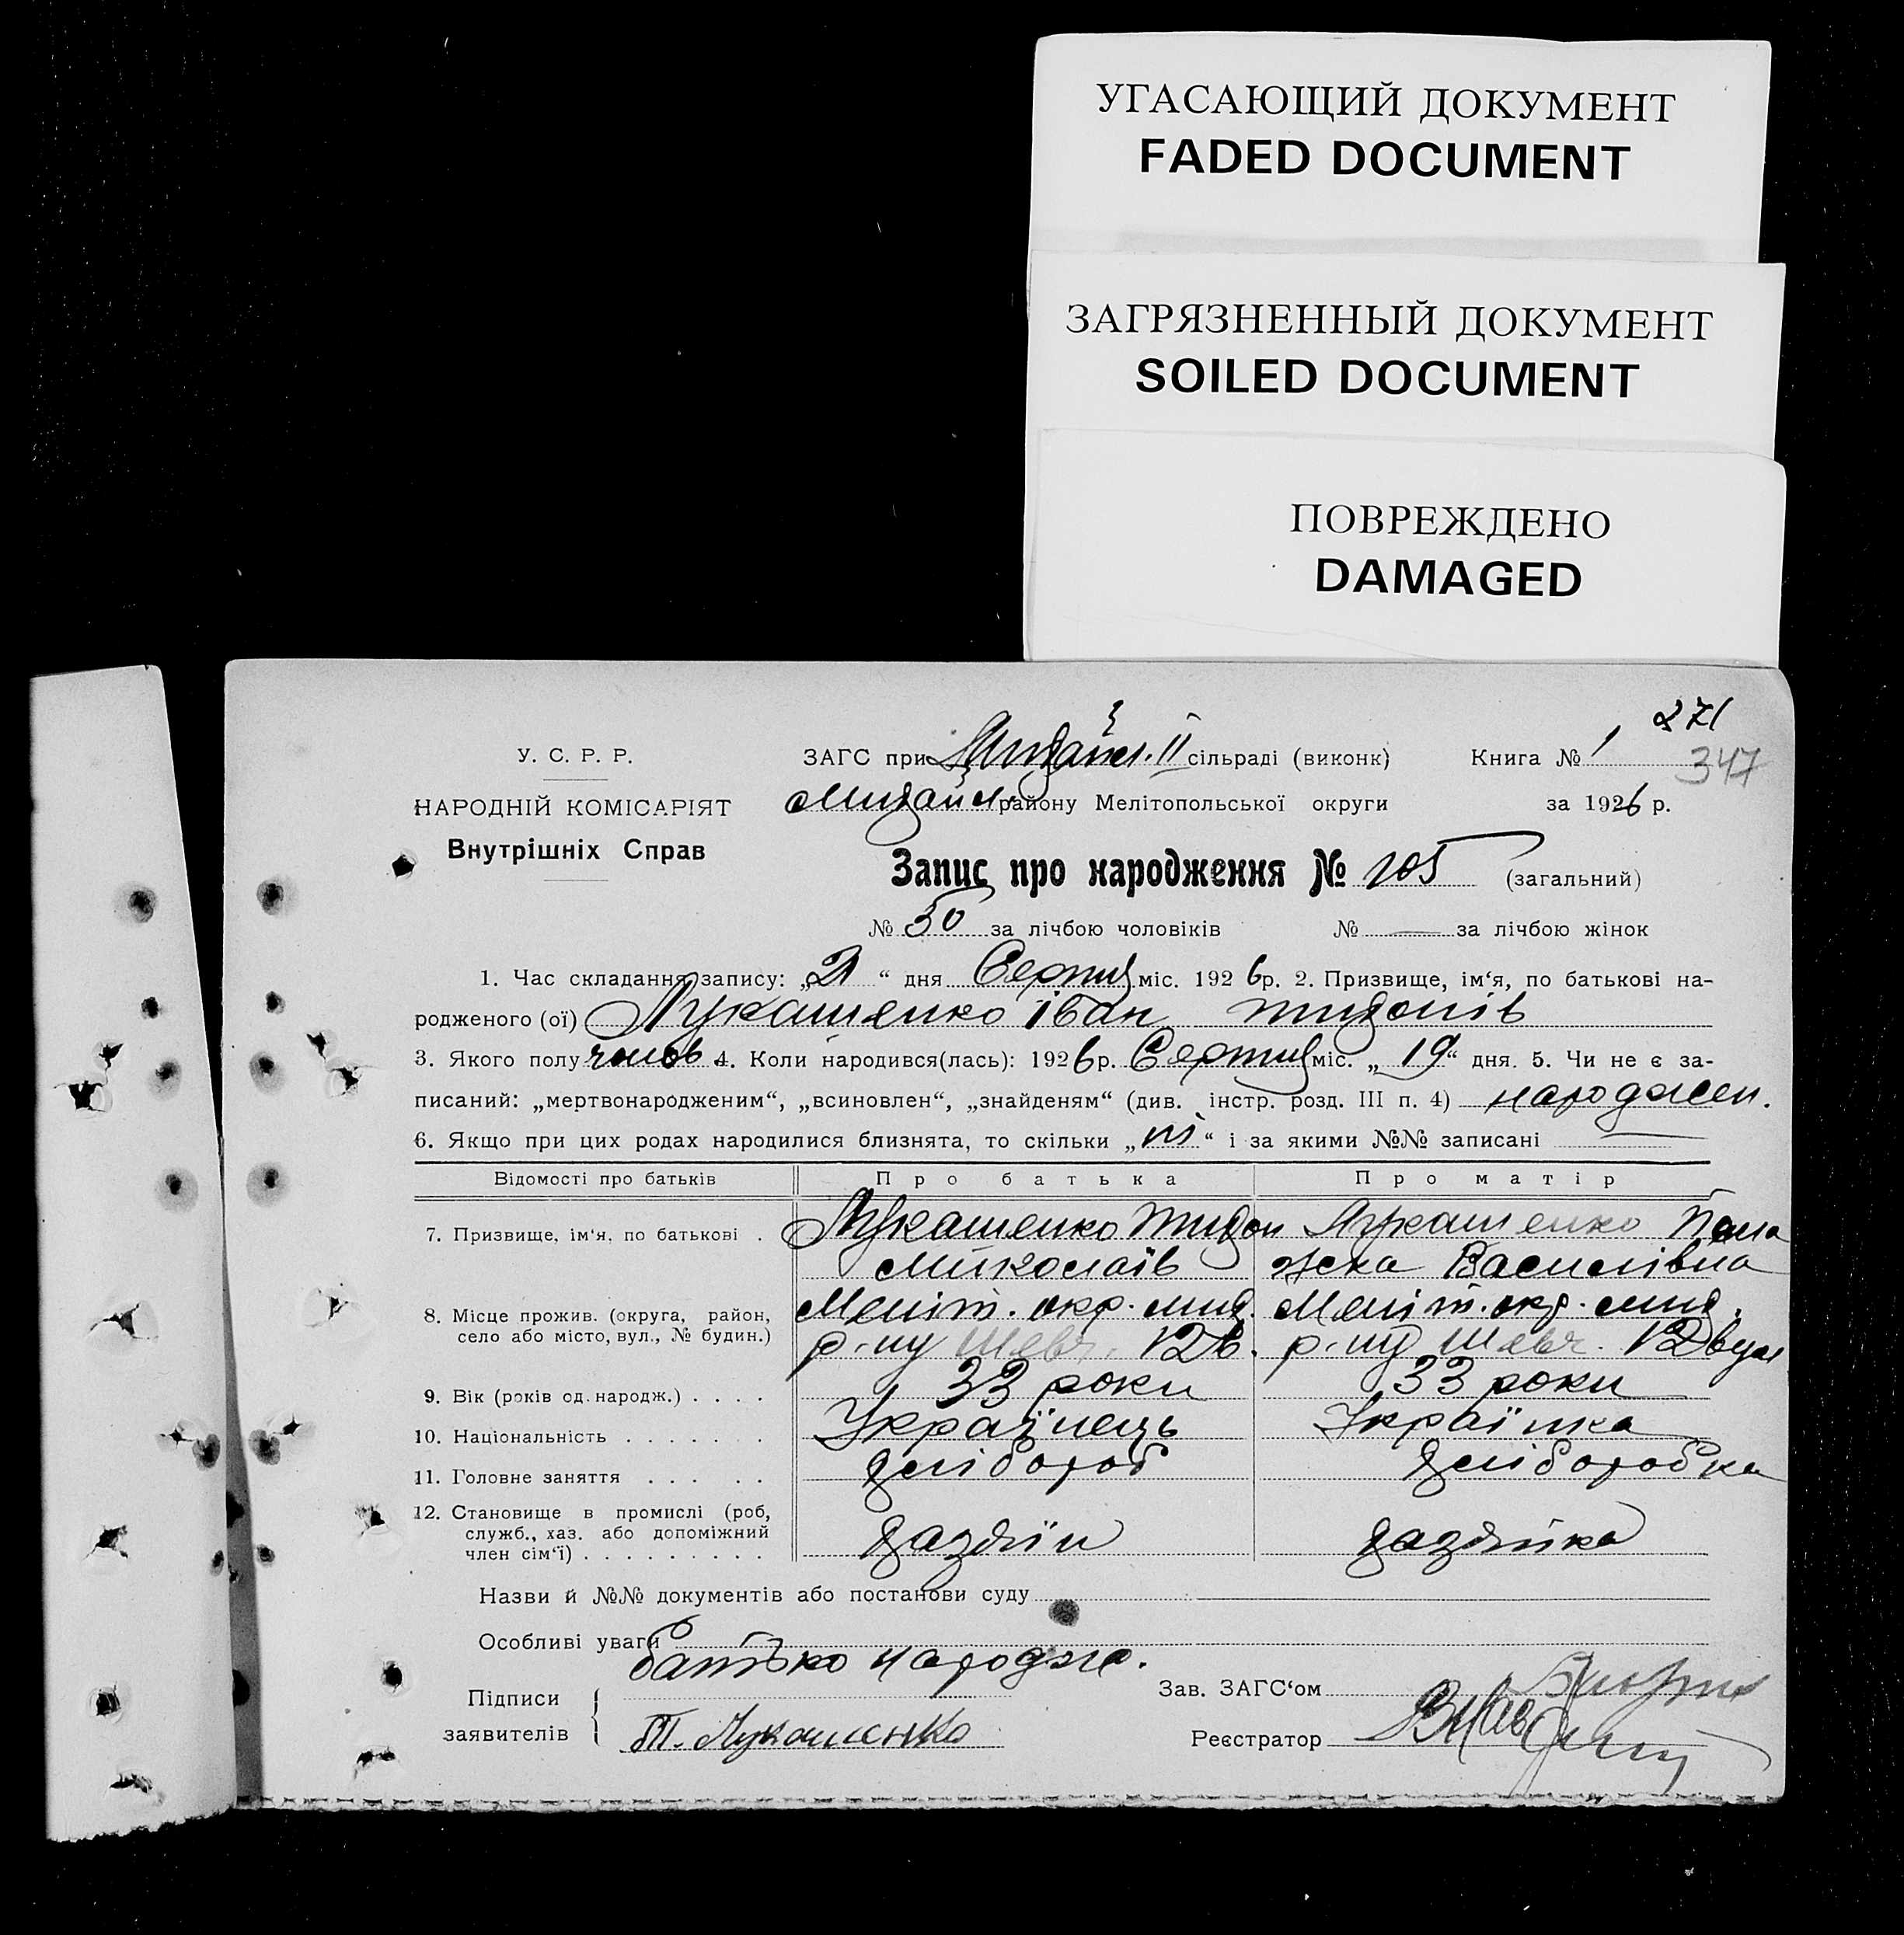 УГАСАЮЩИЙ ДОКУМЕНТ
FADED DOCUMENT
ЗАГРЯЗНЕННЫЙ ДОКУМЕНТ
SOILED DOCUMENT
ПОВРЕЖДЕНО
DAMAGED
271
347
У. С. Р. Р.
ЗАГС при Михайл. II сільраді (виконк)
Книга № 1
НАРОДНІЙ КОМІСАРІЯТ
Михайл. району Мелітопольської округи
за 1926 р.
Внутрішніх Справ
Запис про народження № 105 (загальний)
№ 50 за лічбою чоловіків № — за лічбою жінок
1. Час складання запису: „21“ дня Серпня міс. 1926 р. 2. Призвище, ім‘я, по батькові на-
родженого (ої) Лукашенко Іван Тихонів
3. Якого полу чолов. 4. Коли народився(лась): 1926 р. Серпня міс. „19“ дня. 5. Чи не є за-
писаний: „мертвонародженим“, „всиновлен“, „знайденям“ (див. інстр. розд. III п. 4) народжен.
6. Якщо при цих родах народилися близнята, то скільки „ні“ і за якими №№ записані —
Відомості про батьків
Про батька
Про матір
7. Призвище, ім‘я, по батькові .
Лукашенко Тихон
Миколаїв
Лукашенко Пела
жка Василівна
8. Місце прожив. (округа, район,
село або місто, вул., № будин.)
Меліт. окр. мих.
р-ну Шевч. 12 в.
Меліт. окр. мих.
р-ну Шевч. 12 вул
9. Вік (років од. народж.) . . . .
33 роки
33 роки
10. Національність . . . . . .
Українець
Українка
11. Головне заняття . . . . .
хлібороб
хліборобка
12. Становище в промислі (роб,
служб., хаз. або допоміжний
член сім‘ї) . . . . . . . . .
хазяїн
хазяйка
Назви й №№ документів або постанови суду
Особливі уваги
батько народж.
Підписи
заявителів
Т. Лукашенко
Зав. ЗАГС‘ом
Реєстратор